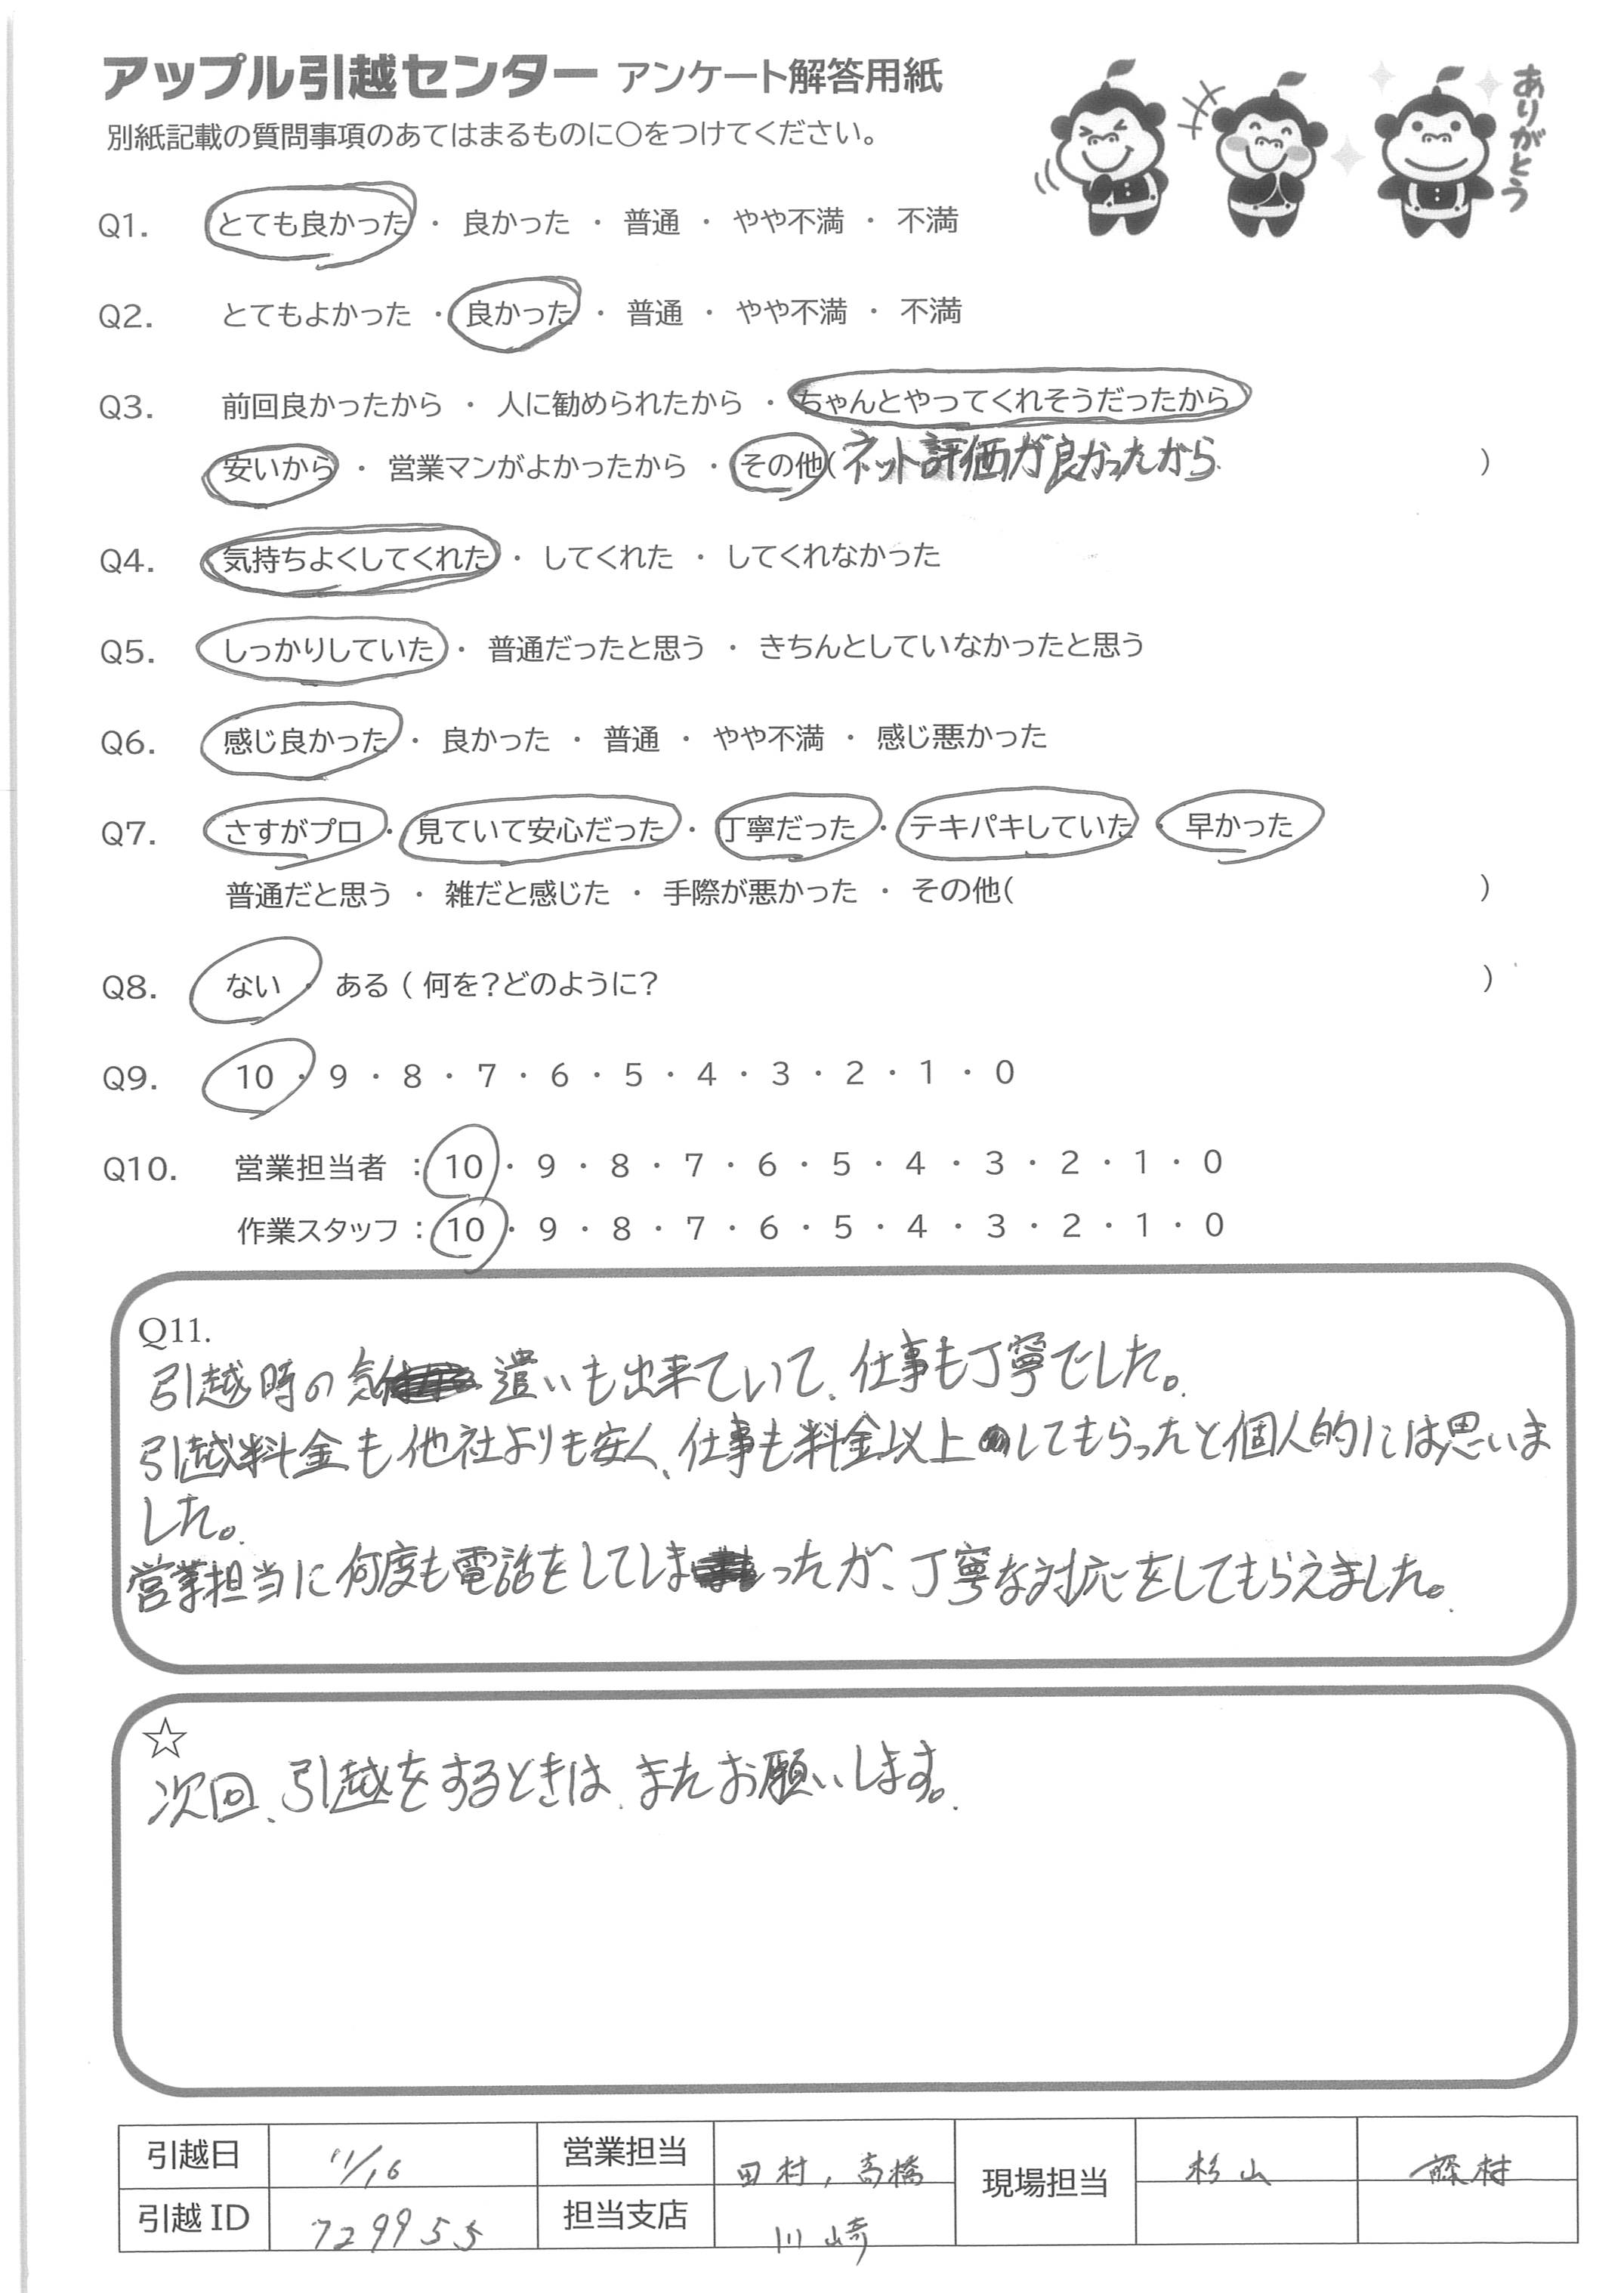 アップル引越センター アンケート解答用紙
別紙記載の質問事項のあてはまるものに○をつけてください。
ありがとう
Q1. とても良かった ・ 良かった ・ 普通 ・ やや不満 ・ 不満
Q2. とてもよかった ・ 良かった ・ 普通 ・ やや不満 ・ 不満
Q3. 前回良かったから ・ 人に勧められたから ・ ちゃんとやってくれそうだったから
安いから ・ 営業マンがよかったから ・ その他(ネット評価が良かったから )
Q4. 気持ちよくしてくれた ・ してくれた ・ してくれなかった
Q5. しっかりしていた ・ 普通だったと思う ・ きちんとしていなかったと思う
Q6. 感じ良かった ・ 良かった ・ 普通 ・ やや不満 ・ 感じ悪かった
Q7. さすがプロ ・ 見ていて安心だった ・ 丁寧だった ・ テキパキしていた ・ 早かった
普通だと思う ・ 雑だと感じた ・ 手際が悪かった ・ その他( )
Q8. ない ・ ある ( 何を?どのように? )
Q9. 10 ・ 9 ・ 8 ・ 7 ・ 6 ・ 5 ・ 4 ・ 3 ・ 2 ・ 1 ・ 0
Q10. 営業担当者 : 10 ・ 9 ・ 8 ・ 7 ・ 6 ・ 5 ・ 4 ・ 3 ・ 2 ・ 1 ・ 0
作業スタッフ : 10 ・ 9 ・ 8 ・ 7 ・ 6 ・ 5 ・ 4 ・ 3 ・ 2 ・ 1 ・ 0
Q11.
引越時の気遣いも出来ていて、仕事も丁寧でした。
引越料金も他社よりも安く、仕事も料金以上してもらったと個人的には思いま
した。
営業担当に何度も電話をしてしまったが、丁寧な対応をしてもらえました。
☆
次回、引越をするときは、またお願いします。
引越日 11/16 営業担当 田村, 高橋 現場担当 杉山 藤村
引越ID 729955 担当支店 川崎